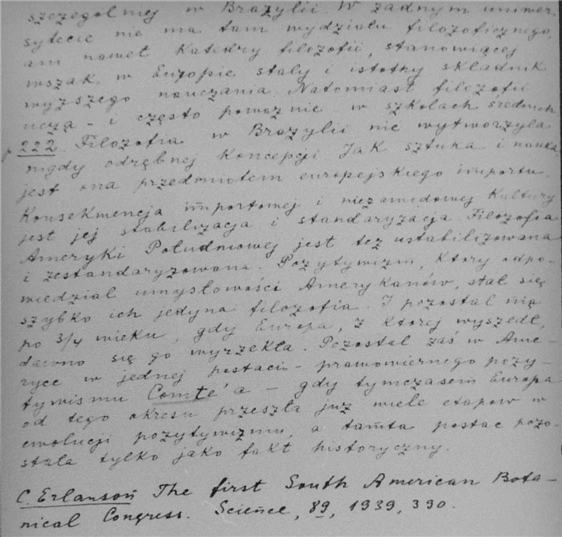 szczególniej w Brazylii. W żadnym uniwer-
sytecie nie ma tam wydziału filozoficznego,
ani nawet Katedry filozofii, stanowiącej
wszak w Europie stały i istotny składnik
wyższego nauczania. Natomiast filozofii
uczą - i często poważnie w szkołach średnich
p. 222 Filozofia w Brazylii nie wytworzyła
nigdy odrębnej koncepcji. Jak sztuka i nauka
jest ona przedmiotem europejskiego importu.
Konsekwencją importowej i niezawodowej Kultury
jest jej stabilizacja i standaryzacja. Filozofia
Ameryki Południowej jest też ustabilizowana
i zestandaryzowana. Pozytywizm, który odpo-
wiedział umysłowości Amerykanów, stał się
szybko ich jedyna filozofia. I pozostał nią
po 3/4 wieku, gdy Europa, z której wyszedł,
dawno się go wyrzekła. Pozostał zaś w Ame-
ryce w jednej postaci - prawowiernego pozy-
tywismu Comte'a - gdy tymczasem Europa
od tego okresu przeszła już wiele etapów w
ewolucji pozytywizmu, a tamta postać pozo-
stała tylko jako fakt historyczny.
C. Erlanson The first South American Bota-
nical Congress. Science, 89, 1939, 390.